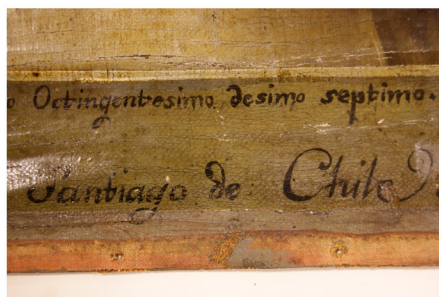 o Octingentesimo desimo septimo.
Santiago de Chile